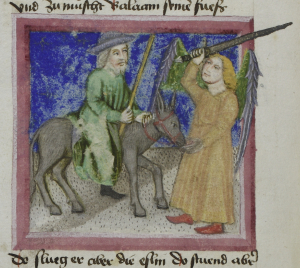 vnd zu mürscht Balaam sein fuess
Do slueg er aber die eslin do stuend aber